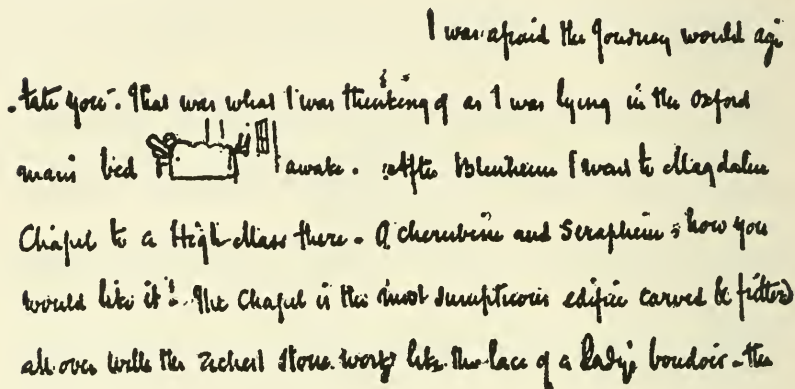 I was afraid the Journey would agi
-tate you. That was what I was thinking of as I was lying in the Oxford
man's bed awake. After Blenheim I went to Magdalen
Chapel to a High Mass there. O cherubim and Seraphim how you
would like it! The Chapel is the most sumptuous edifice carved & fretted
all over with the richest stone work like the lace of a Lady's boudoir - the